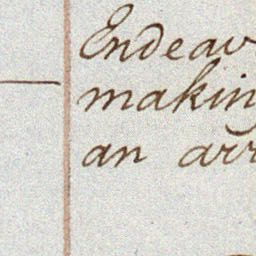 Endeav
makin
an arr